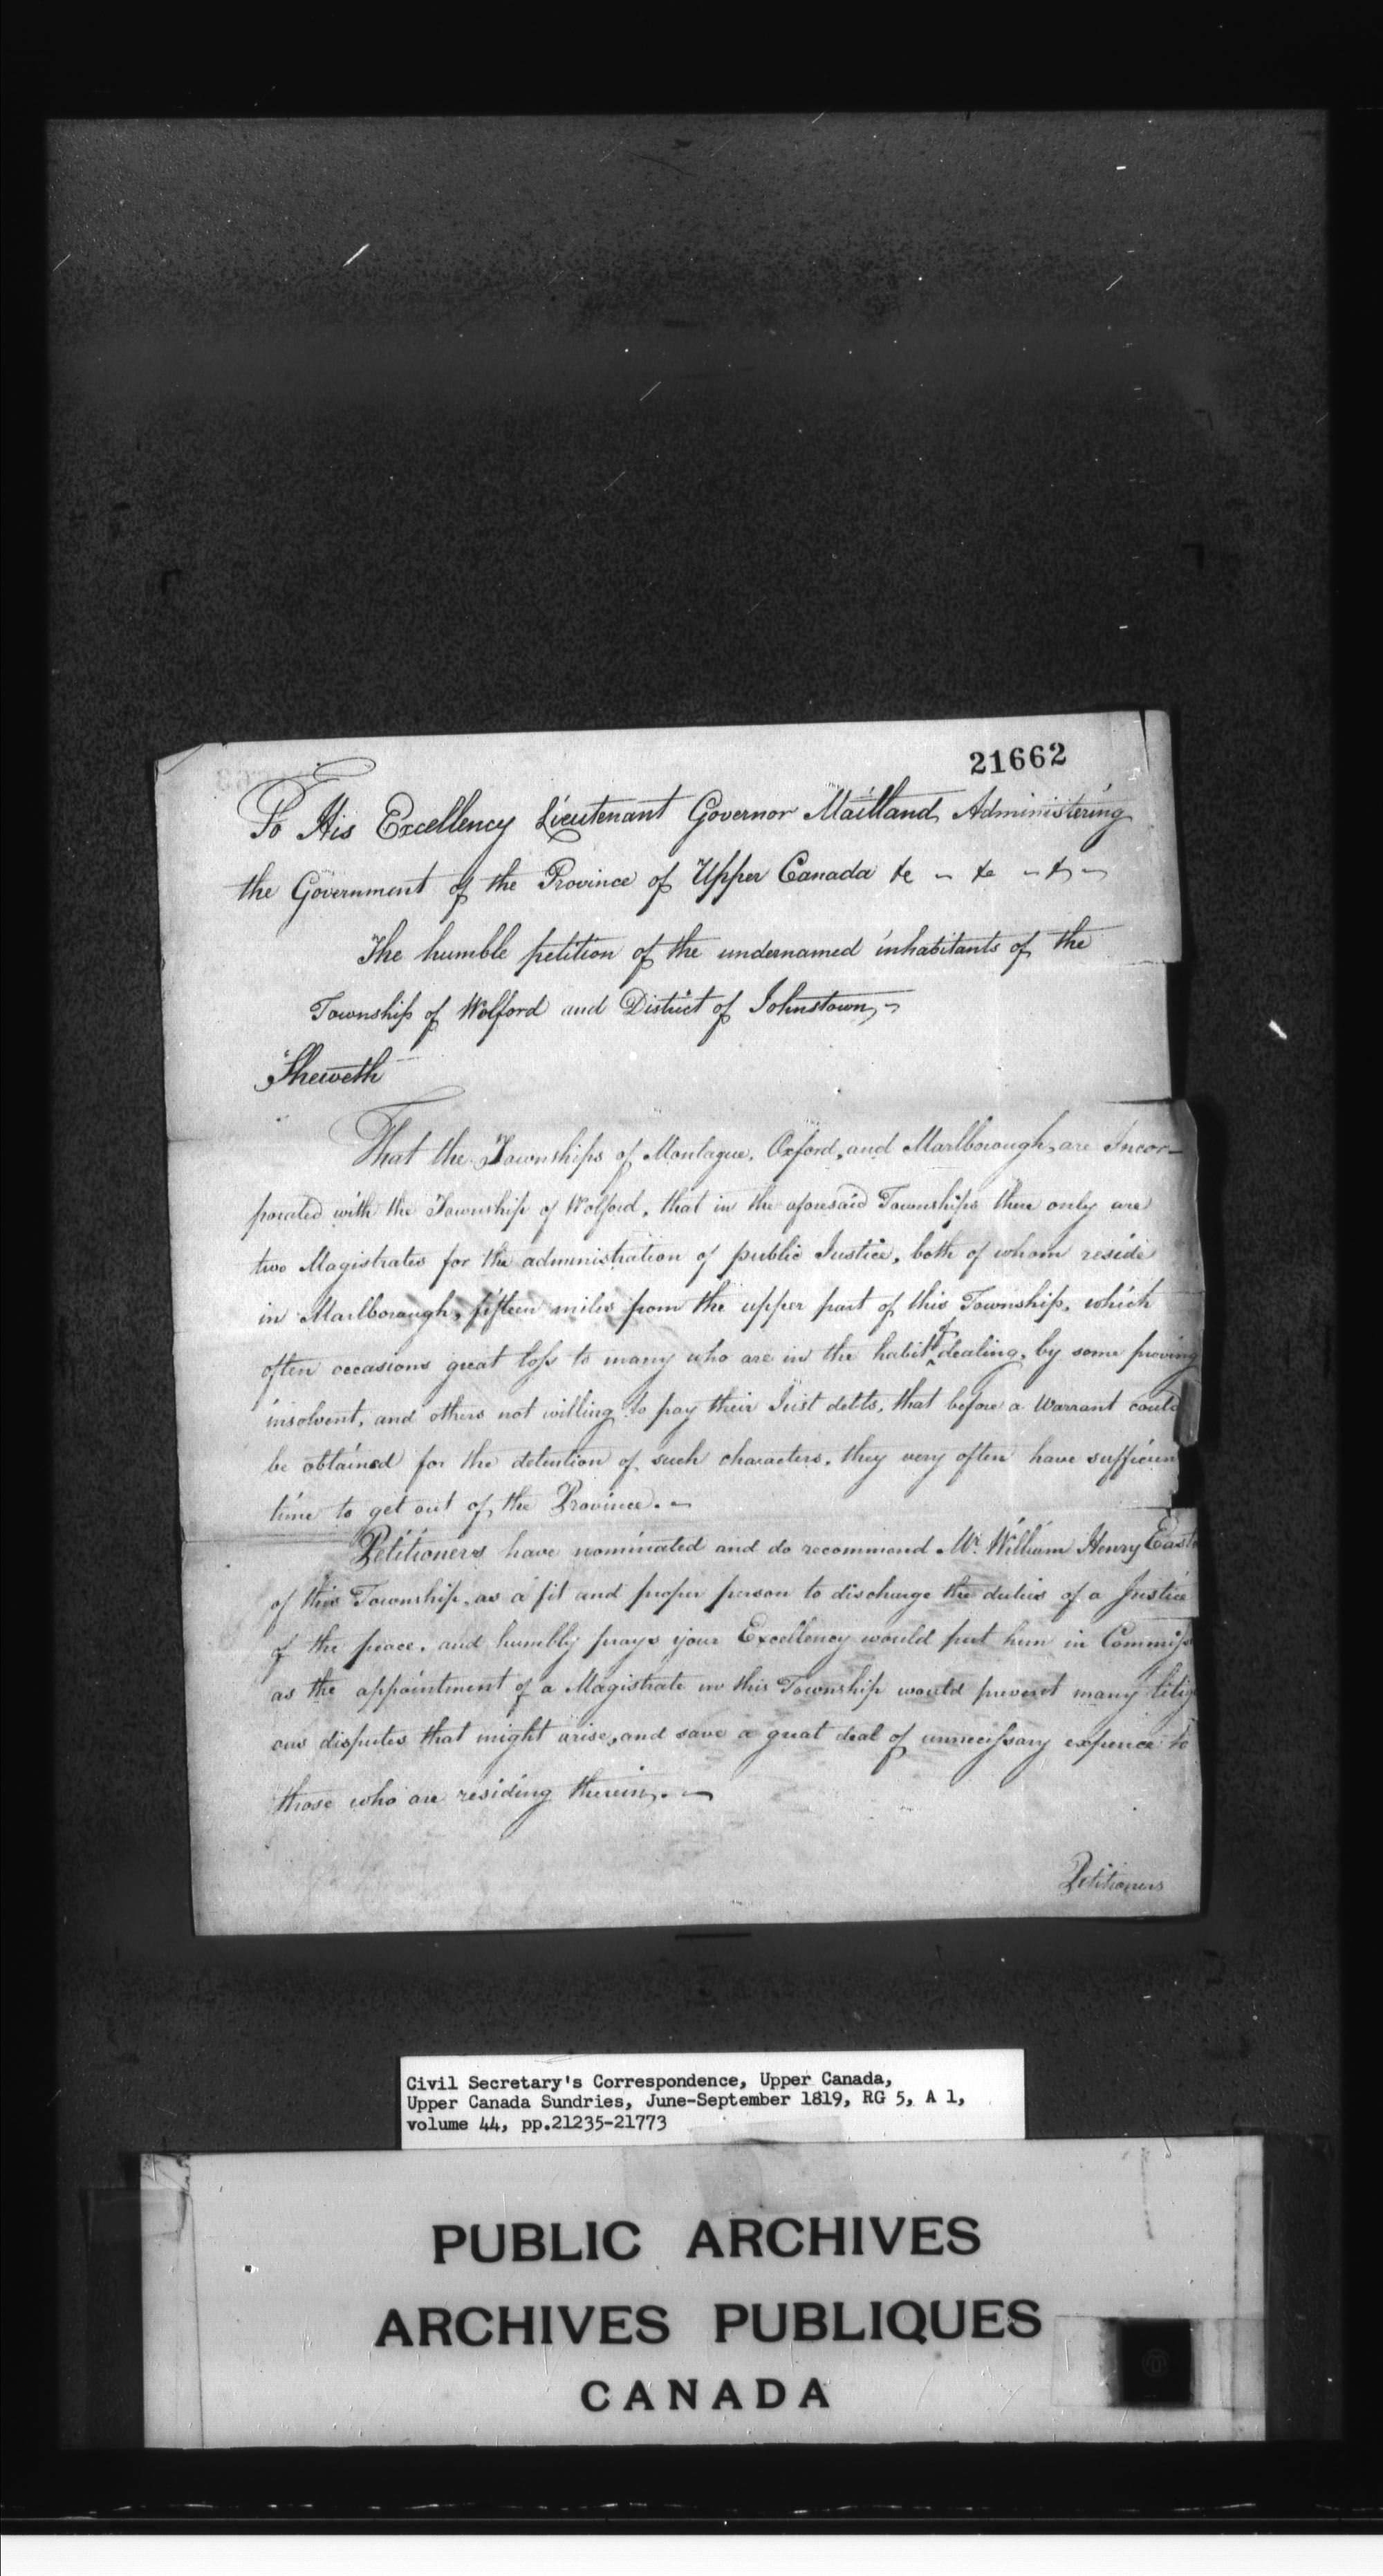 21662
To His Excellency Lieutenant Governor Maitland Administering
the Government of the Province of Upper Canada &c - &c - &c -
The humble petition of the undernamed inhabitants of the
Township of Wolford and District of Johnstown, -
Sheweth
That the Townships of Montague, Oxford, and Marlborough, are Incor-
porated with the Township of Wolford, that in the aforesaid Townships there only are
two Magistrates for the administration of public Justice, both of whom reside
in Marlborough, fifteen miles from the upper part of this Township, which
often occasions great loss to many who are in the habit of dealing, by some proving
insolvent, and others not willing to pay their Just debts, that before a Warrant could
be obtained for the detention of such characters, they very often have sufficien
time to get out of the Province. -
Petitioners have nominated and do recommend Mr. William Henry East
of this Township, as a fit and proper person to discharge the duties of a Justice
of the peace, and humbly prays your Excellency would put him in Commiss
as the appointment of a Magistrate in this Township would prevent many litig
ous disputes that might arise, and save a great deal of unnecessary expence to
those who are residing therein. -
Petitioners
Civil Secretary's Correspondence, Upper Canada,
Upper Canada Sundries, June-September 1819, RG 5, A 1,
volume 44, pp.21235-21773
PUBLIC ARCHIVES
ARCHIVES PUBLIQUES
CANADA